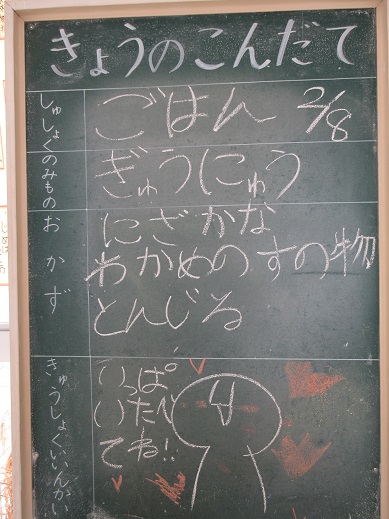 きょうのこんだて
しゅしょく
ごはん 2/8
のみもの
ぎゅうにゅう
おかず
にざかな
わかめのすの物
とんじる
きゅうしょくいいんかい
いっぱ
いたべ
てね!!